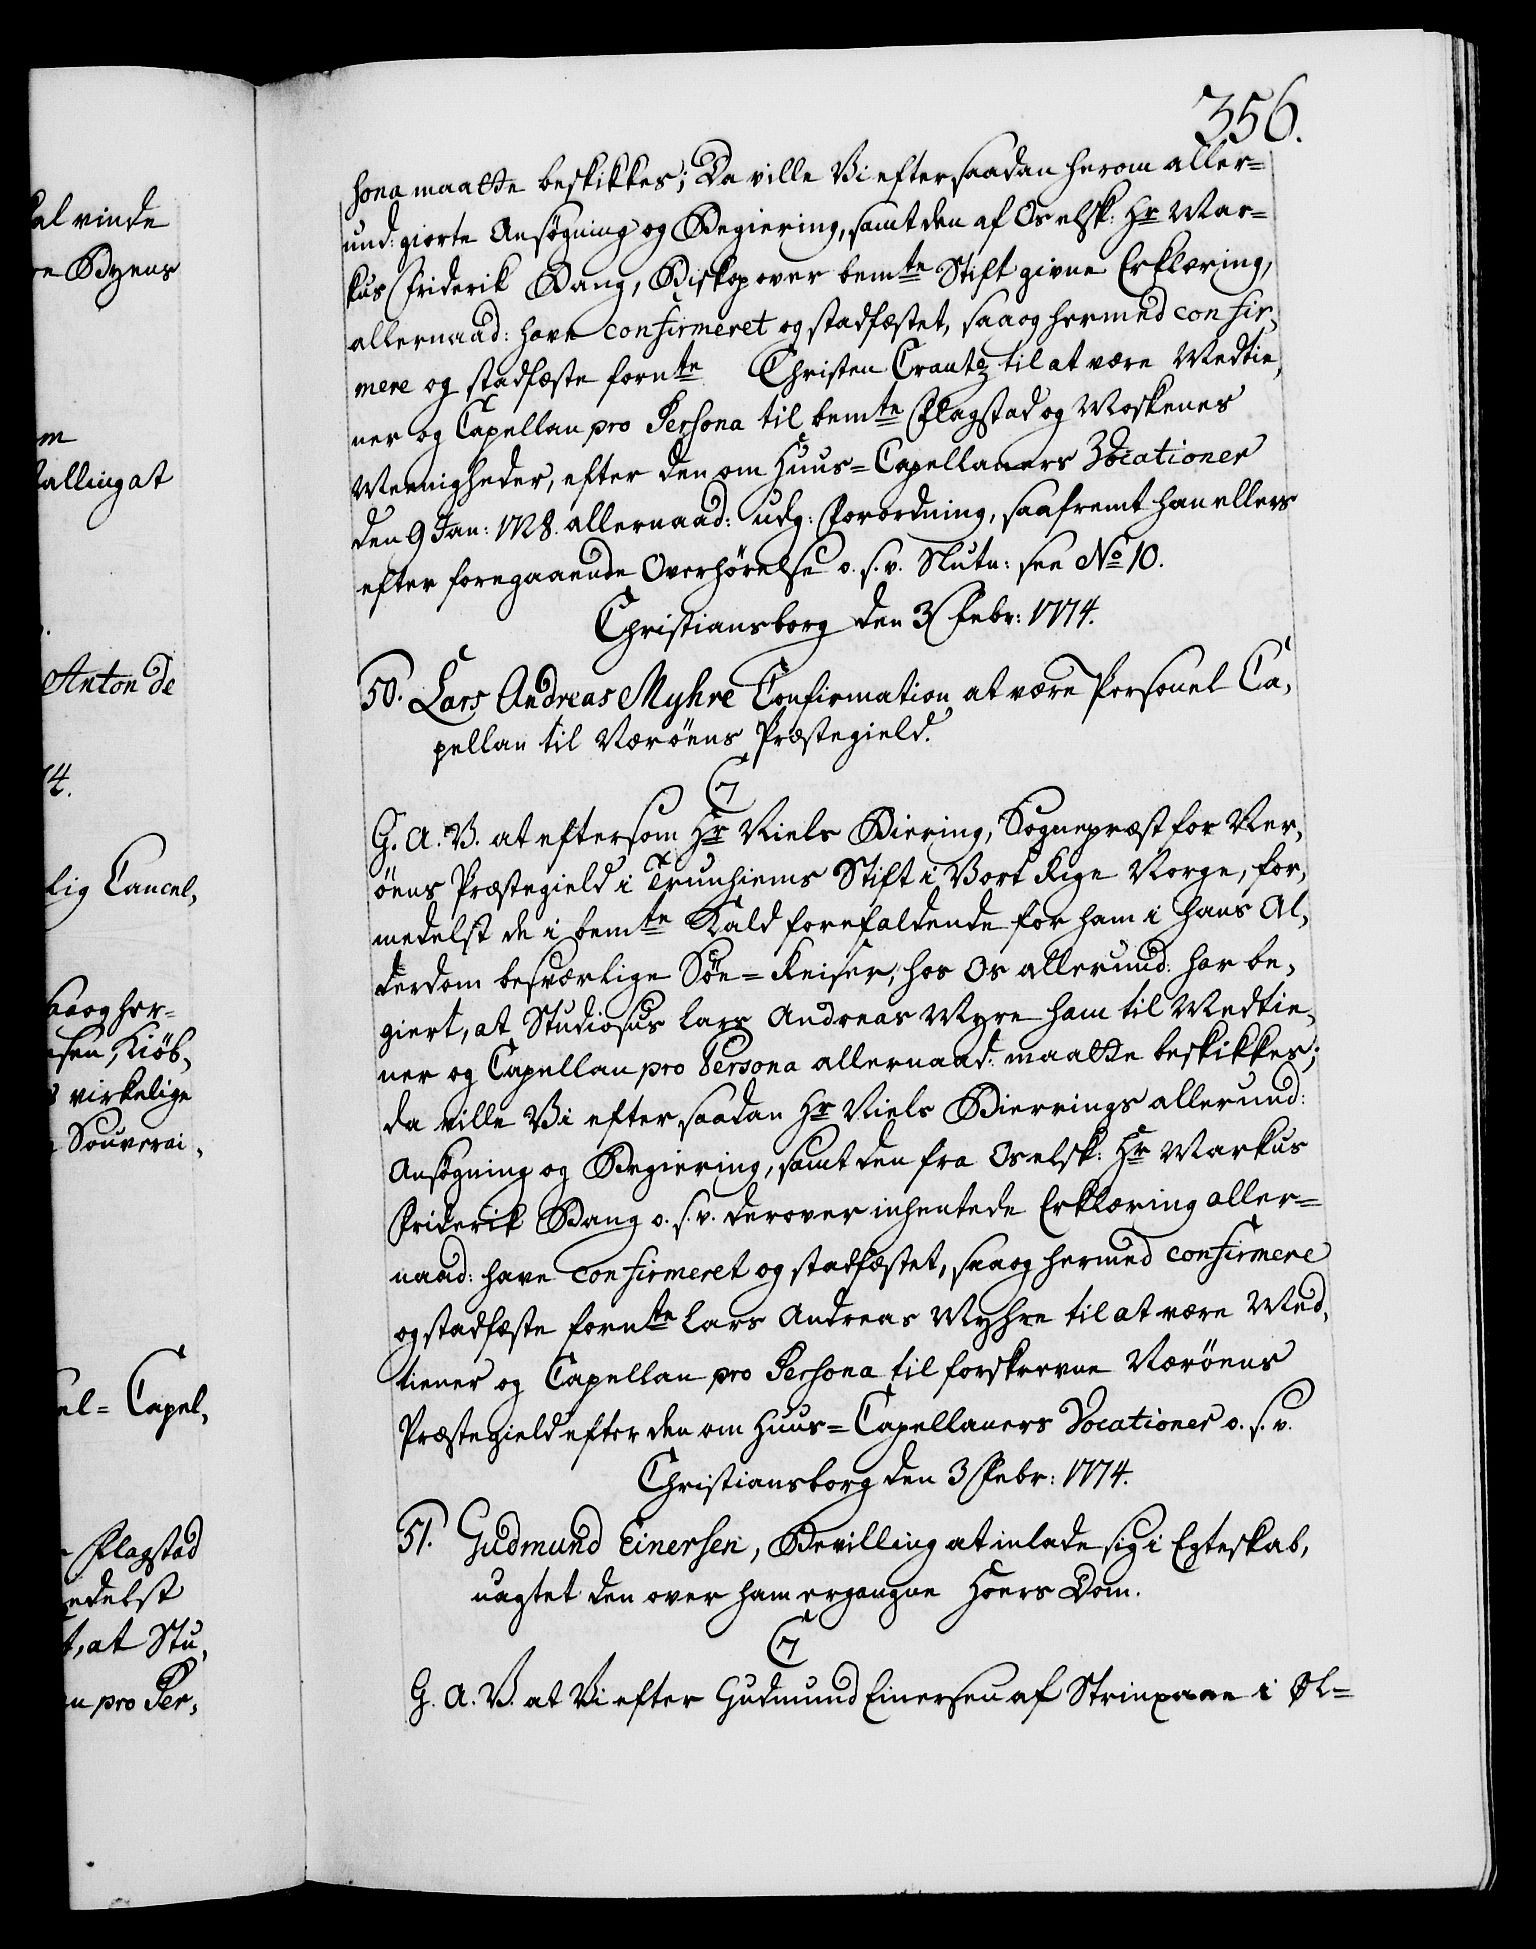 356.
sona maatte beskikkes; Da ville Vi efter saadan herom aller=
und: giorte Ansøgning og Begiering, samt den af Os elsk: Hr Mar=
kus Friderik Bang, Biskop over bemte Stift givne Erklæring,
allernaad: have confirmeret og stadfæstet, saa og hermed confir,
mere og stadfæste fornte Christen Crantz til at være Medtie,
ner og Capellan pro Persona til bemte Flagstad og Moskenes
Meenigheder, efter den om Huus=Capellaners Vocationer
den 9 Jan: 1728. allernaad: udg: Forordning, saafremt han ellers
efter foregaaende Overhørelse o. s. v. Slutn: see No 10.
Christiansborg den 3 Febr: 1774.
50. Lars Andreas Myhre Confirmation at være Personel Ca,
pellan til Værøens Præstegield.
C7
G. A. V. at eftersom Hr Niels Biering, Sognepræst for Vær,
øens Præstegield i Trunhiems Stift i Vort Rige Norge, for,
medelst de i bemte Kald forefaldende for ham i hans Al,
derdom besværlige Søe=Reiser, hos Os allerund: har be,
giert, at Studiosus Lars Andreas Myre ham til Medtie,
ner og Capellan pro Persona allernaad: maatte beskikkes;
da ville Vi efter saadan Hr Niels Bierrings allerund:
Ansøgning og Begiering, samt den fra Os elsk: Hr Markus
Friderik Bang o. s. v. derover inhentede Erklæring aller=
naad: have confirmeret og stadfæstet, saa og hermed confirmere
og stadfæste fornte Lars Andreas Myhre til at være Med,
tiener og Capellan pro Persona til forskrevne Værøens
Præstegield efter den om Huus=Capellaners Vocationer o. s. v.
Christiansborg den 3 Febr: 1774.
51. Gudmund Einersen, Bevilling at inlade sig i Egteskab,
uagtet den over ham ergangne Hoers Dom.
C7
G. A. V. at Vi efter Gudmund Einersen af i Øl=
al vinde
re Byens
m
alling at
Anton de
74.
lig Cancel,
saa og her=
sen, Kiøb,
s virkelige
Souverai,
el=Capel,
Flagstad
edelst
t, at Stu,
n pro Per,